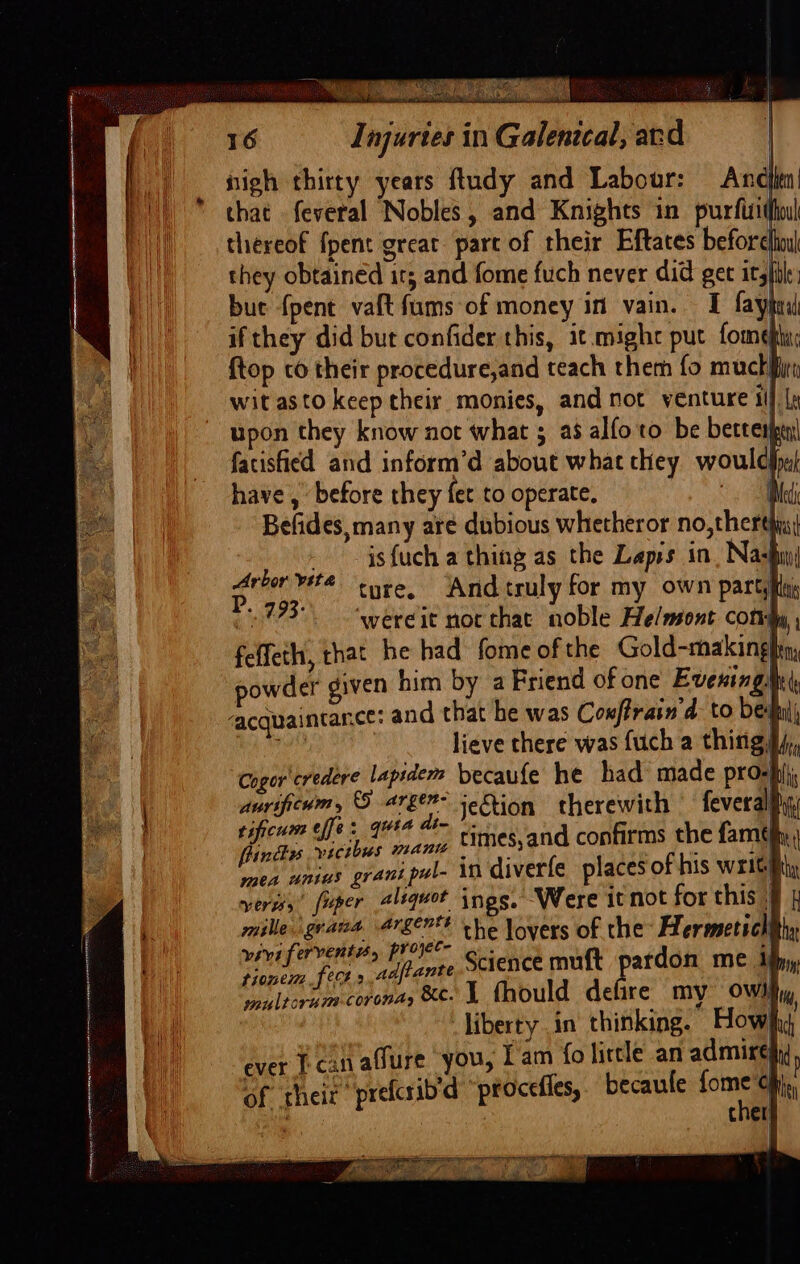 16 Injuries in Galenical, and
nigh thirty years ſtudy and Labour: And
that ſeveral Nobles, and Knights in purſuit
thereof ſpent great part of their Eſtates before
they obtained it; and ſome ſuch never did get it,
but ſpent vaſt ſums of money in vain. I ſay
if they did but conſider this, it might put ſome
ſtop to their procedure, and teach them ſo much
wit as to keep their monies, and not venture it
upon they know not what; as alſo to be better
ſatisfied and inform'd about what they would
have, before they ſet to operate.
Beſides, many are dubious whether or no, there
is ſuch a thing as the Lapis in Na-
ture. And truly for my own part,
were it not that noble Helmont con-
feſſeth, that he had ſome of the Gold-making
powder given him by a Friend of one Evenings
acquaintance: and that he was Conſtrain'd to be-
lieve there was ſuch a thing,
becauſe he had made pro-
jection therewith ſeveral
times, and confirms the ſame
in diverſe places of his writ-
ings. Were it not for this
the lovers of the Hermetick
Science muſt pardon me if
I ſhould deſire my own
liberty in thinking. How-
ever I can aſſure you, I am ſo little an admirer
of their preſcrib'd proceſſes, becauſe ſome o-
ther
Arbor vitæ
P. 793.
Cogor credere lapidem
aurificum, & argen-
tificum eſſe: quia di-
ſtinctis vicibus manu
mea unius grani pul-
veris, ſuper aliquot
mille grana argenti
vivi ferventis, projec-
tionem feci, adſtante
multorum corona, &c.